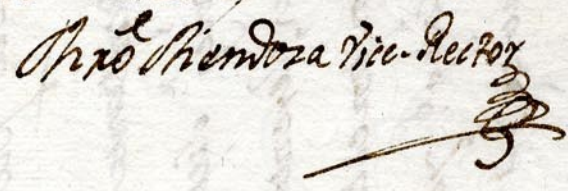 Mro Mendoza Vice-Rector